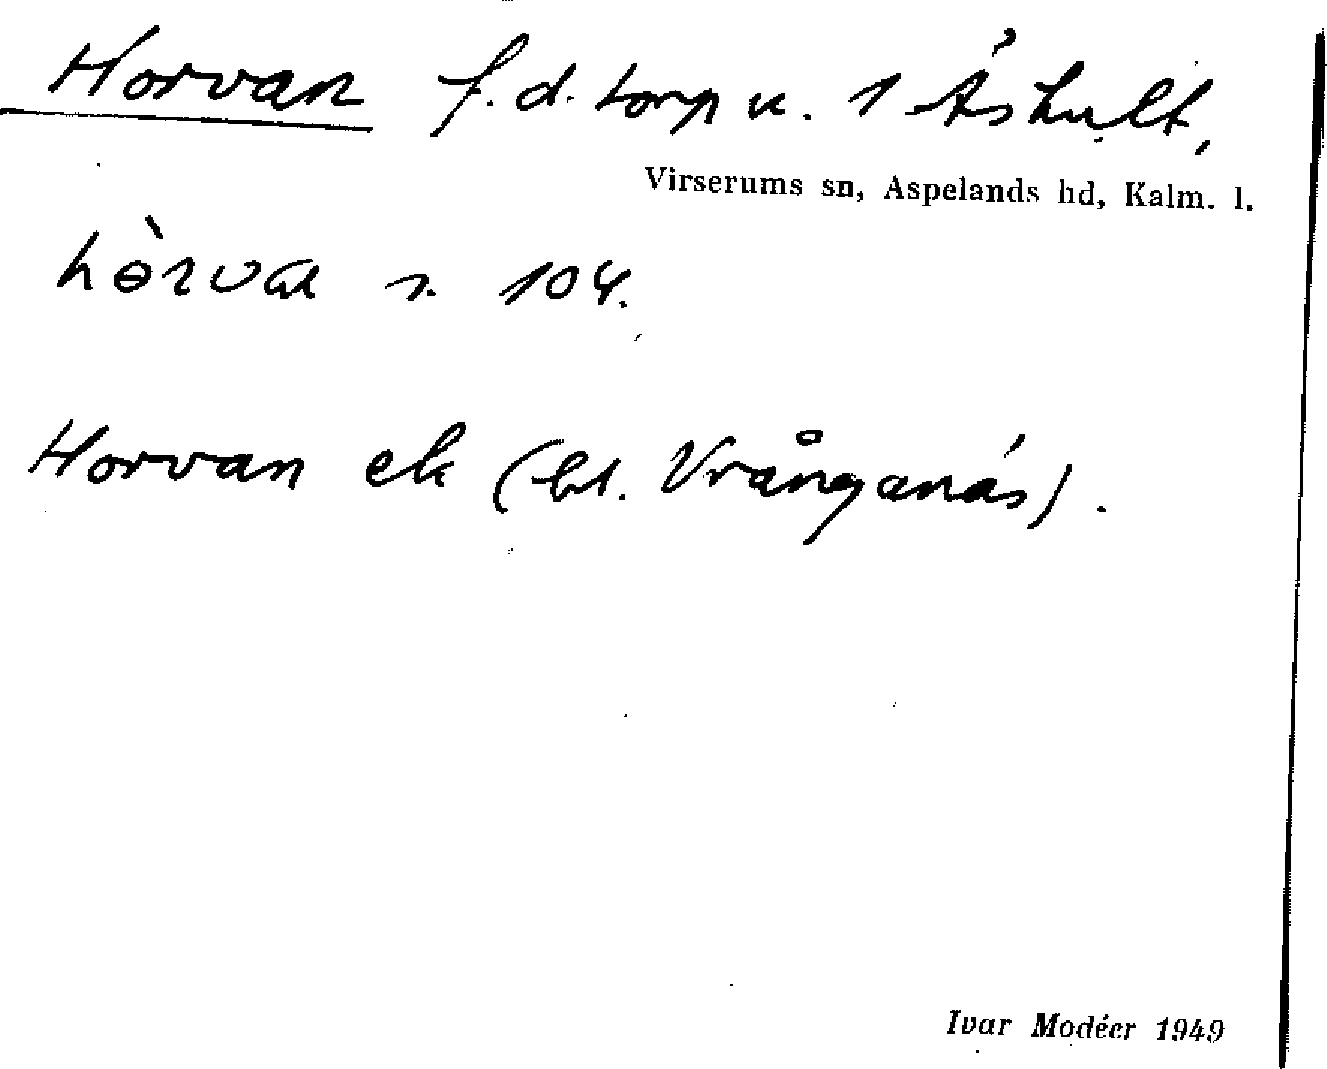 Horvan f.d. torp u. 1 Åshult,
Virserums sn, Aspelands hd, Kalm. l.
hɵ̀rvan s. 104.
Horvan ek (bl. Vrånganäs).
Ivar Modéer 1949